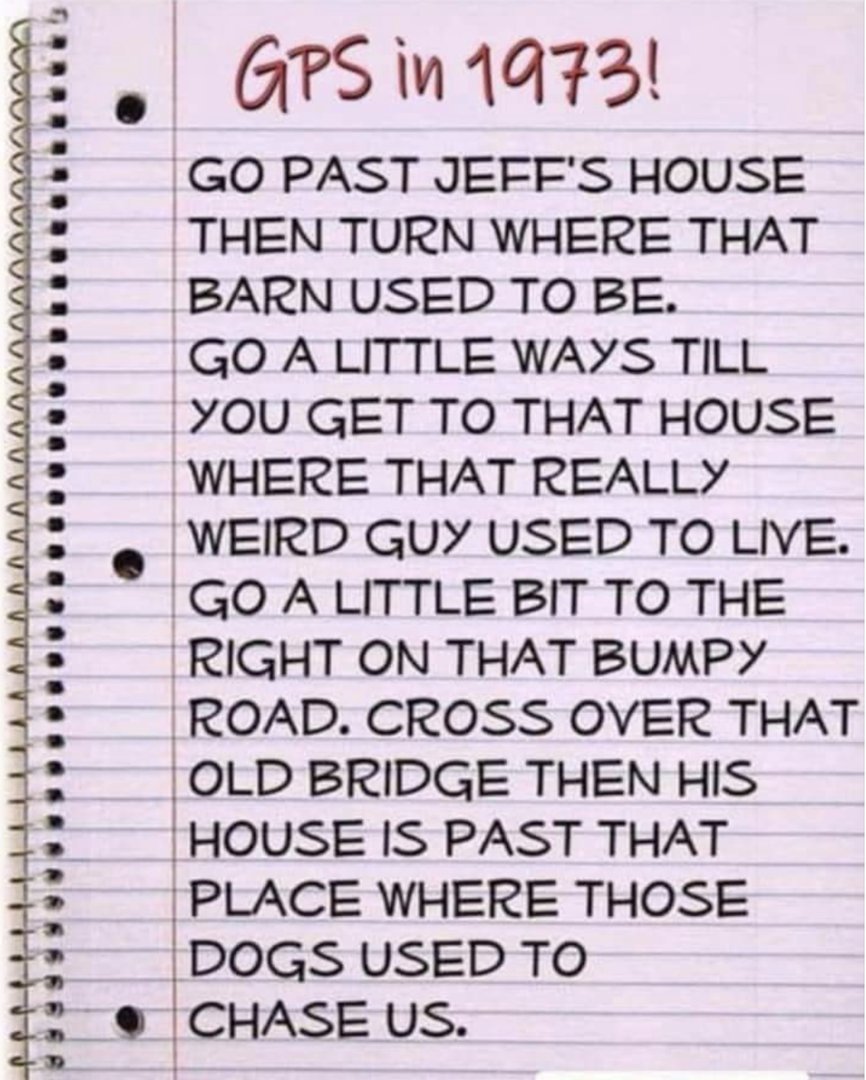 GPS in 1973!
GO PAST JEFF'S HOUSE
THEN TURN WHERE THAT
BARN USED TO BE.
GO A LITTLE WAYS TILL
YOU GET TO THAT HOUSE
WHERE THAT REALLY
WEIRD GUY USED TO LIVE.
GO A LITTLE BIT TO THE
RIGHT ON THAT BUMPY
ROAD. CROSS OVER THAT
OLD BRIDGE THEN HIS
HOUSE IS PAST THAT
PLACE WHERE THOSE
DOGS USED TO
CHASE US.